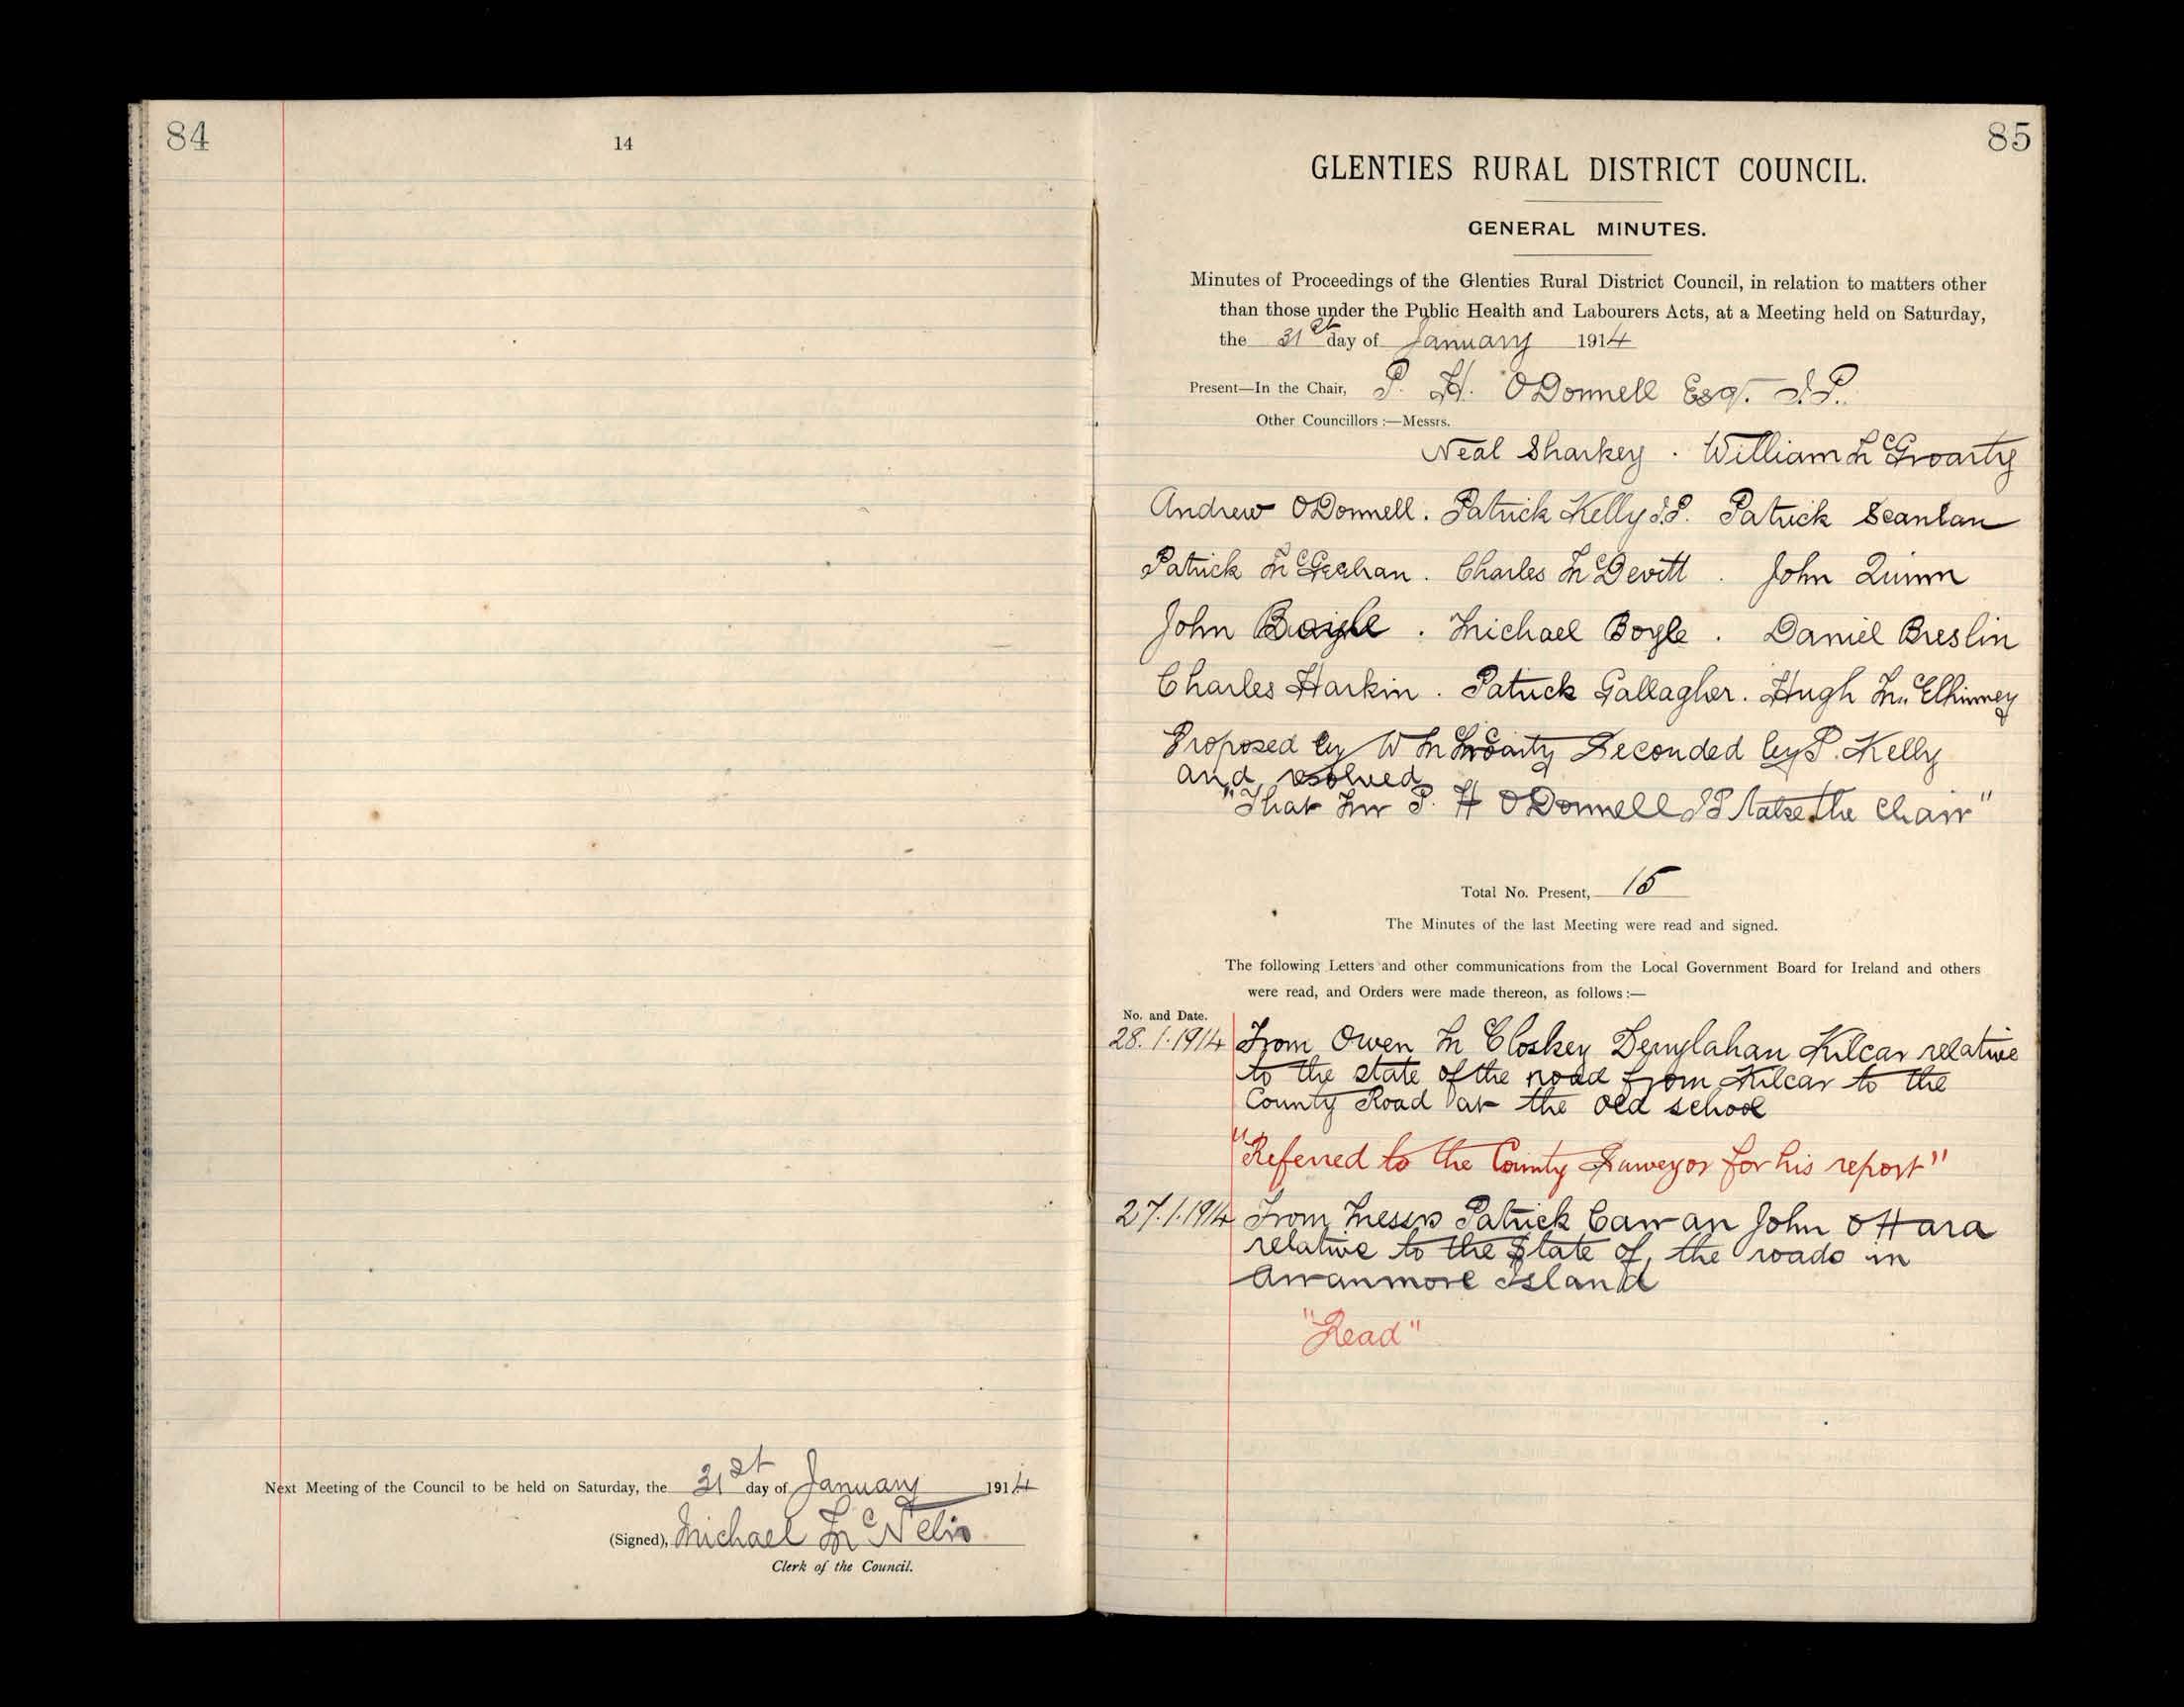 84
14
Next Meeting of the Council to be held on Saturday, the 31st day of January 1914
(Signed), Michael McNelis
Clerk of the Council.
85
GLENTIES RURAL DISTRICT COUNCIL.
GENERAL MINUTES.
Minutes of Proceedings of the Glenties Rural District Council, in relation to matters other
than those under the Public Health and Labourers Acts, at a Meeting held on Saturday,
the 31st day of January 1914
Present—In the Chair, P. H. ODonnell Esq. J.P.
Other Councillors :—Messrs.
Neal Sharkey . William McGroarty
Andrew ODonnell . Patrick Kelly J.P. Patrick Scanlan
Patrick McGeehan . Charles McDevitt . John Quinn
John Boyle . Michael Boyle . Daniel Breslin
Charles Harkin . Patrick Gallagher . Hugh McElhinney
Proposed by W McGroarty Seconded by P. Kelly
and resolved
"That Mr P. H ODonnell JP take the Chair"
Total No. Present, 15
The Minutes of the last Meeting were read and signed.
The following Letters and other communications from the Local Government Board for Ireland and others
were read, and Orders were made thereon, as follows :—
No. and Date.
28.1.1914 From Owen McCloskey Derrylahan Kilcar relative
to the state of the road from Kilcar to the
County Road at the old school
"Referred to the County Surveyor for his report"
27.1.1914 From Messrs Patrick John OHara
relative to the state of the roads in
Arranmore Island
"Read"